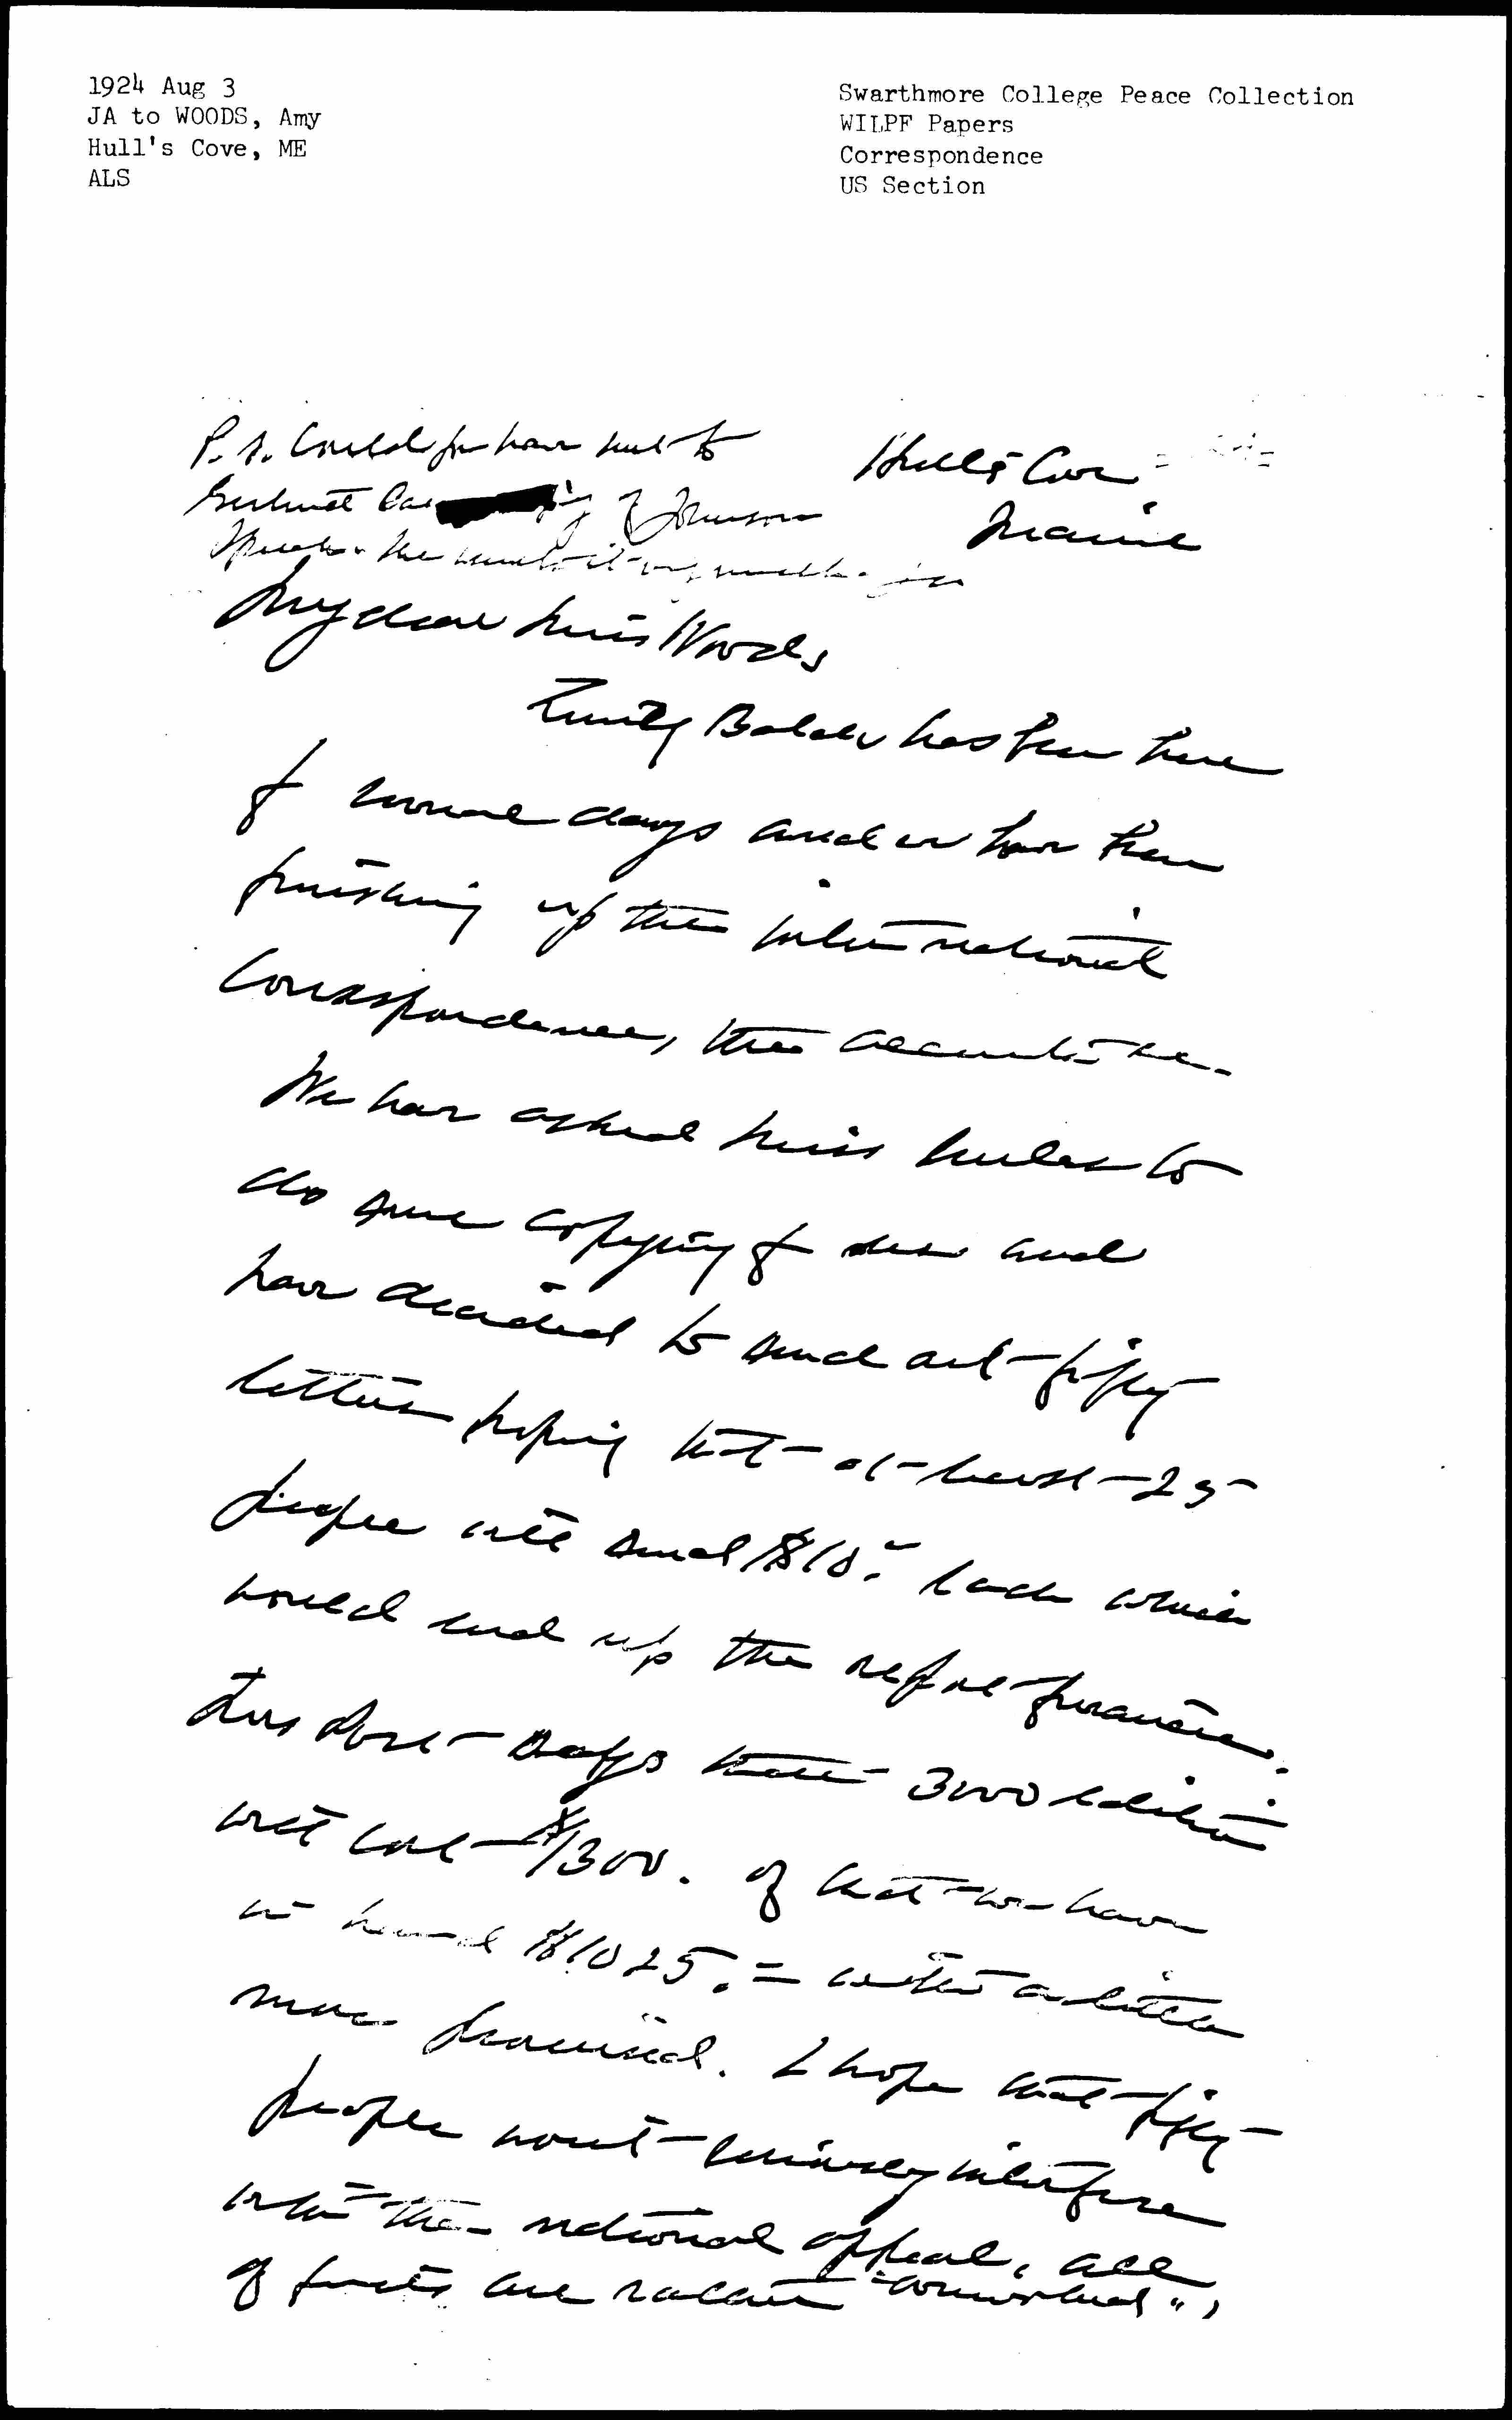 1924 Aug 3
JA to WOODS, Amy
Hull's Cove, ME
ALS
Swarthmore College Peace Collection
WILPF Papers
Correspondence
US Section
P.S. Could you have sent to
Gertrude a copy of Johnson
Speech. She wants it very much. JA
Hull's Cove =
Maine
My dear Miss Woods
Emily Balch has been here
for several days and we have been
finishing up the international
Correspondence, the accounts &c.
We have asked Miss to
do some copying for us and
have decided to send out fifty
letters hoping that at least 25
people will send $10.= each which
would end up the report finances.
Miss says the 3000 edition
will cost $1300. of that we have
in hand $1025.= with a little
more promised. I hope that fifty
people won't seriously interfere
with the national appeal, all
of finds are rather "overworked",